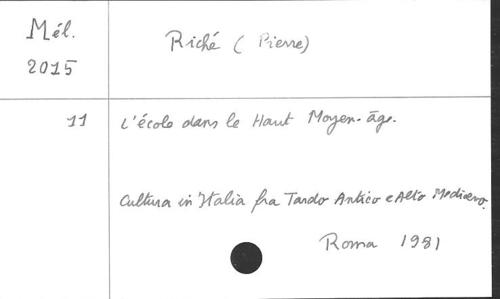 Mél.
2015
Riché (Pierre)
11
L'école dans le Haut Moyen-âge.
Cultura in Italia fra Tardo Antico e Alto Medioevo.
Roma 1981